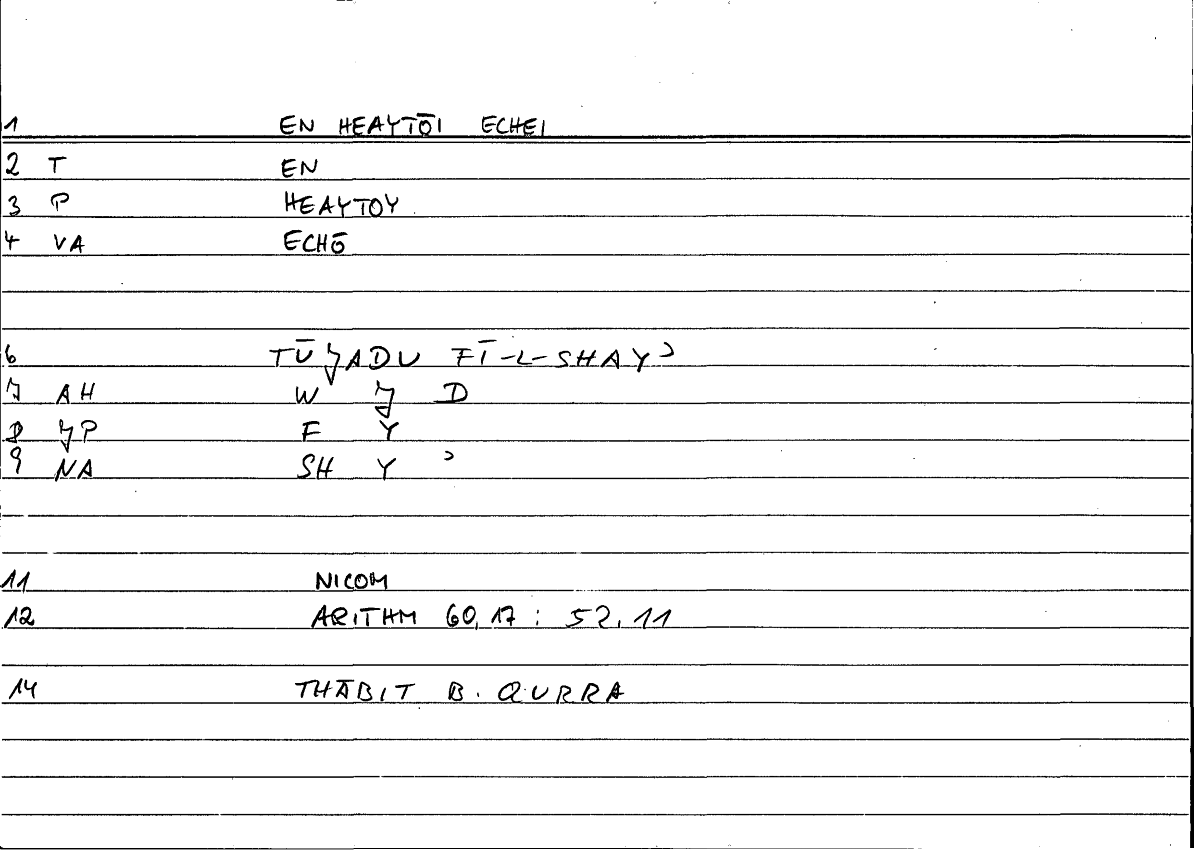 1 EN HEAYTŌI ECHEI
2 T EN
3 P HEAYTOY
4 VA ECHŌ
6 TŪJADU FĪ-L-SHAYʾ
7 AH W J D
8 JP F Y
9 NA SH Y ʾ
11 NICOM
12 ARITHM 60,17 : 52,11
14 THĀBIT B. QURRA